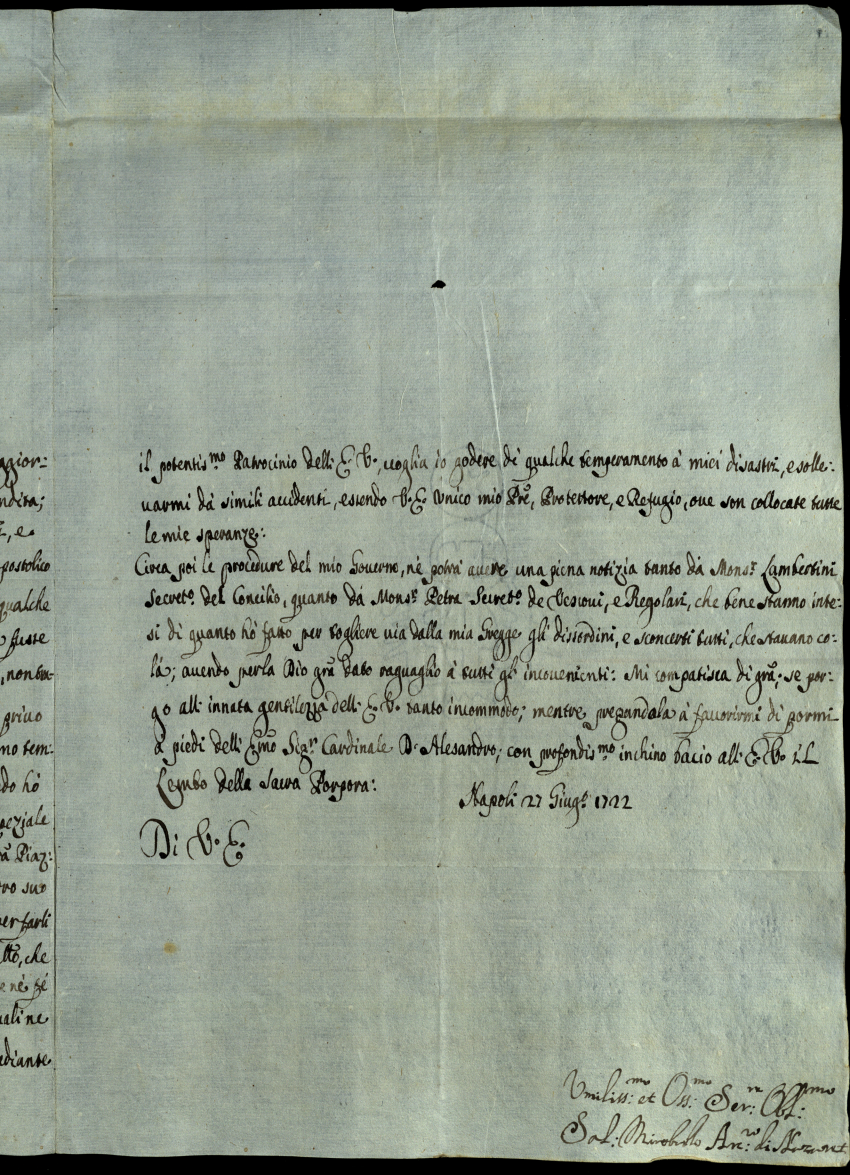 aggior:
ndita;
, e
postolico
qualche
fuste
, non tra-
privo
no tem:
do hò
peziale
rã Piaz:
ro suo
per farli
tto, che
e nè sè
uali ne
ediante
il potentis.mo Patrocinio dell: E. V., uoglia io godere di qualche temperamento à miei disastri, e solle:
uarmi dà simili accidenti, essendo V. E. Unico mio Prẽ, Protettore, e Refugio, oue son collocate tutte
le mie speranze:
Circa poi le procedure del mio Gouerno, nè potrà auere una piena notizia tanto dà Mons.r Lambertini
Secret.o del Concilio, quanto dà Mons.r Petra Secret.o de Vescoui, e Regolari, che bene stanno inte:
si di quanto hò fatto per togliere uia dalla mia Gregge gli disordini, e sconcerti tutti, che stauano co:
là; auendo per la Dio grã dato raguaglio à tutti gl' inconuenienti: Mi compatisca di grã; se por:
go all: innata gentilezza dell: E. V. tanto incommodo; mentre pregandola à fauorirmi di pormi
à piedi dell: Emo Sig.r Cardinale D. Alesandro; con profondis.mo inchino bacio all: E. V. il
Lembo della Sacra Porpora:
Napoli 27 Giug.o 1722
Di V. E.
Umiliss:mo et Oss:mo Ser:re Obl:mo
Sal: Mirobello Arc:vo di Nazaret